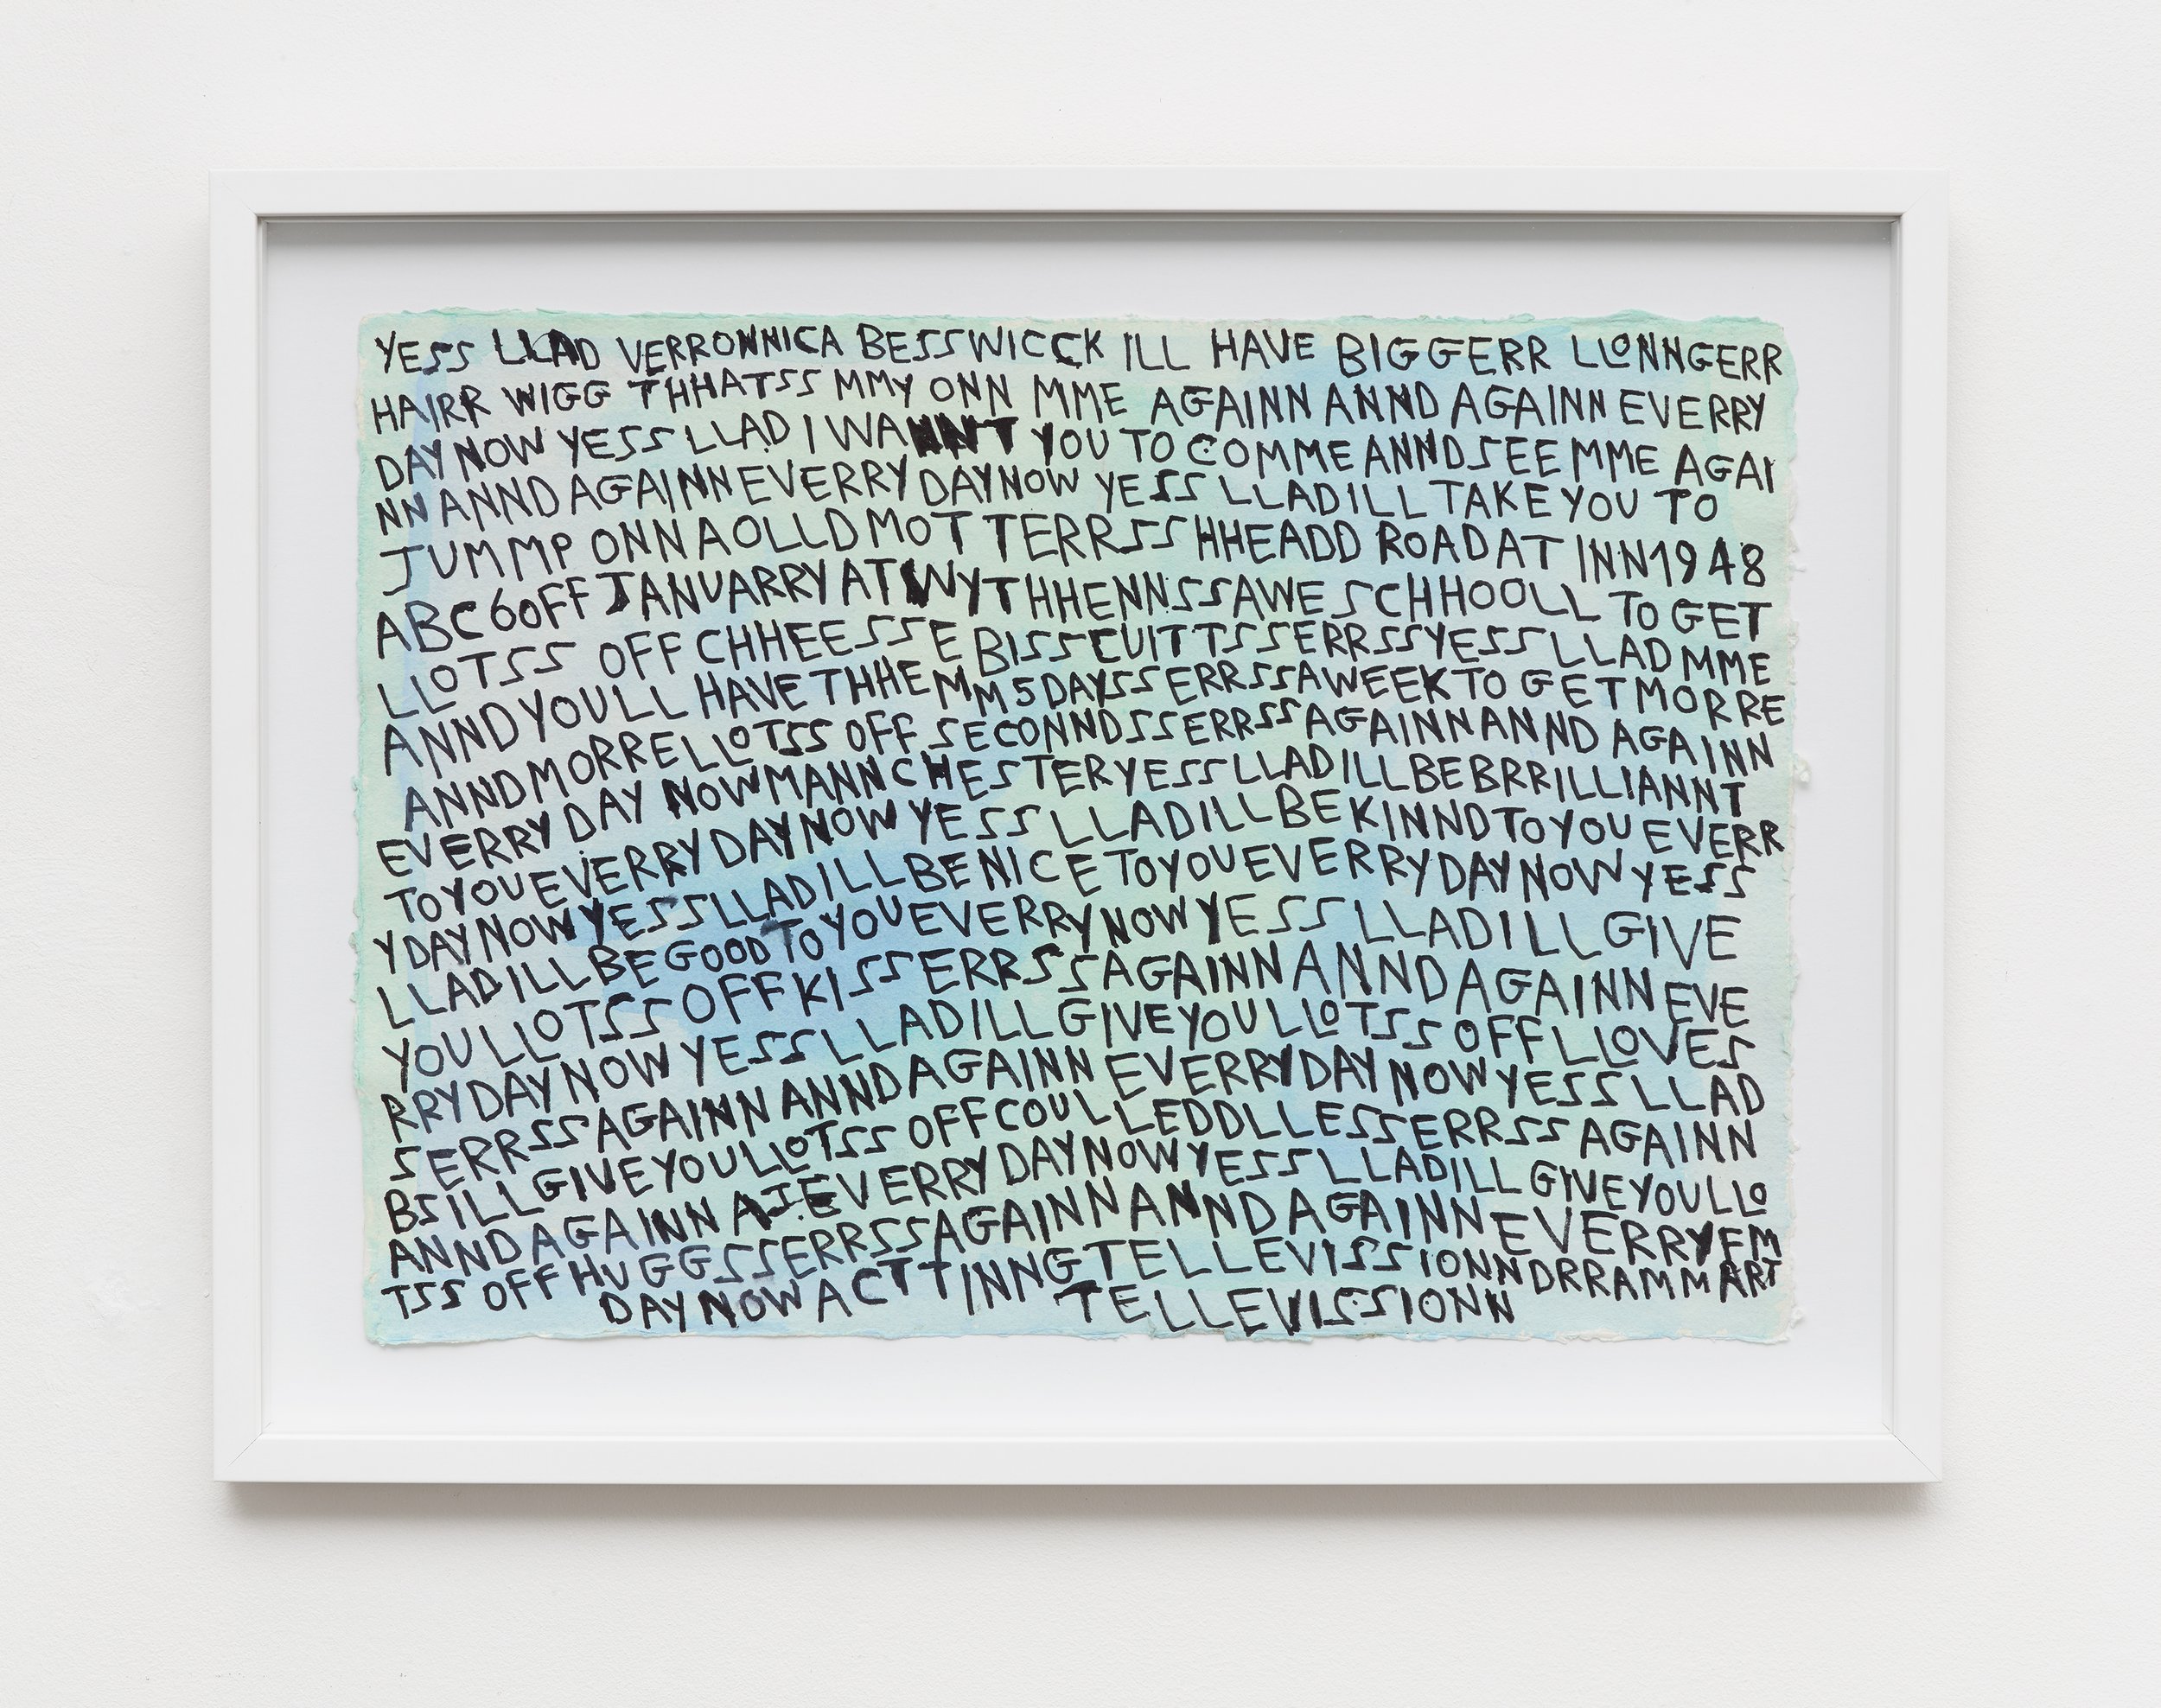 YESS LLAD VERRONNICA BESSWICCK ILL HAVE BIGGERR LLONNGERR
HAIRR WIGG THHATSS MMY ONN MME AGAINN ANND AGAINN EVERRY
DAY NOW YESS LLAD I WANNT YOU TO COMME ANND SEE MME AGAI
NN ANND AGAINN EVERRY DAY NOW YESS LLAD ILL TAKE YOU TO
JUMMP ONN A OLLD MOTTERRSS HHEADD ROAD AT INN 1948
ABC 6 OFF JANUARRY AT WYTHHENNSSAWE SCHHOOLL TO GET
LLOTSS OFF CHHEESSE BISSCUITTSSERRSS YESS LLAD MME
ANND YOULL HAVE THHEMM 5 DAYSSERRSS A WEEK TO GET MORRE
ANND MORRE LLOTSS OFF SECONNDSSERRSS AGAINN ANND AGAINN
EVERRY DAY NOW MANNCHESTER YESS LLAD ILL BE BRRILLIANNT
TO YOU EVERRY DAY NOW YESS LLAD ILL BE KINND TO YOU EVERR
Y DAY NOW YESS LLAD ILL BE NICE TO YOU EVERRY DAY NOW YESS
LLAD ILL BE GOOD TO YOU EVERRY NOW YESS LLAD ILL GIVE
YOU LLOTSS OFF KISSERRSS AGAINN ANND AGAINN EVE
RRY DAY NOW YESS LLAD ILL GIVE YOU LLOTSS OFF LLOVES
SERRSS AGAINN ANND AGAINN EVERRY DAY NOW YESS LLAD
BSILL GIVE YOU LLOTSS OFF COULLEDDLLESSERRSS AGAINN
ANND AGAINN EVERRY DAY NOW YESS LLAD ILL GIVE YOU LLO
TSS OFF HUGGSSERRSS AGAINN ANND AGAINN EVERRY
DAY NOW ACTTINNG TELLEVISSIONN DRRAMM
TELLEVISSIONN